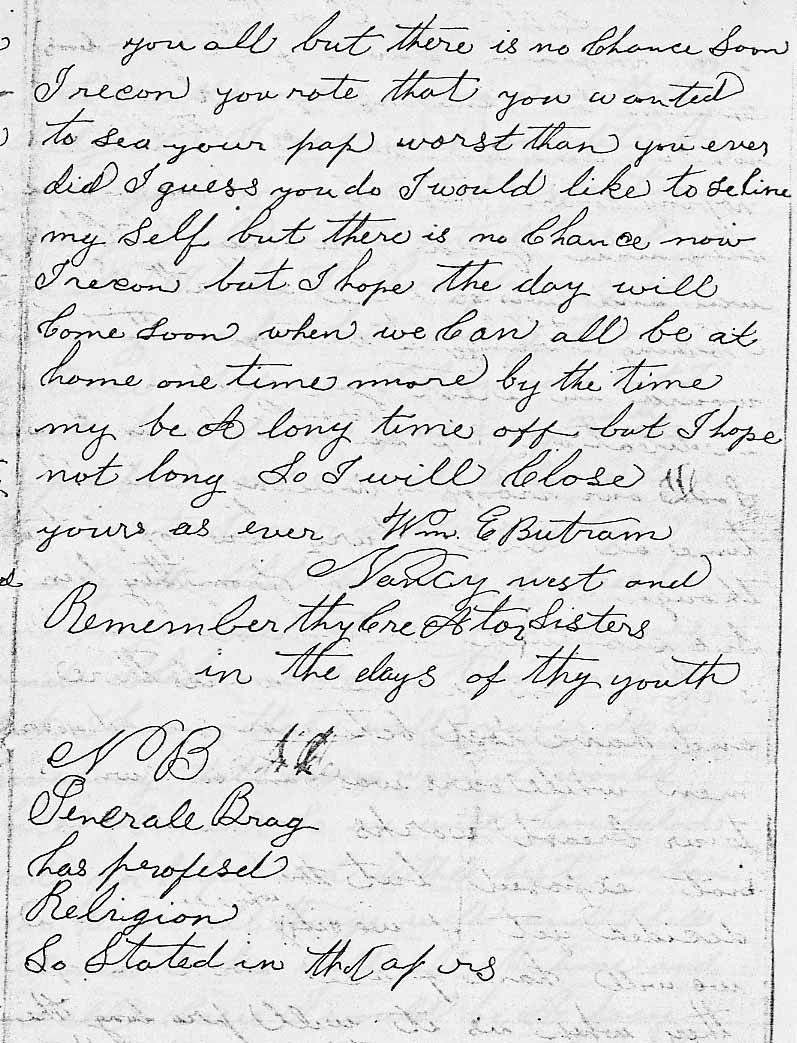 you all but there is no Chance Soon
I recon you rote that you wanted
to sea your pap worst than you ever
did I guess you do I would like to se hine
my Self but there is no Chance now
I recon but I hope the day will
Come Soon when we Can all be at
home one time more by the time
my be A long time off but I hope
not long So I will Close
yours as ever Wm. E Butram
Nancy west and
Remember thy Cre Ator Sisters
in the days of thy youth
N B
Generale Brag
has profesed
Religion
So Stated in the